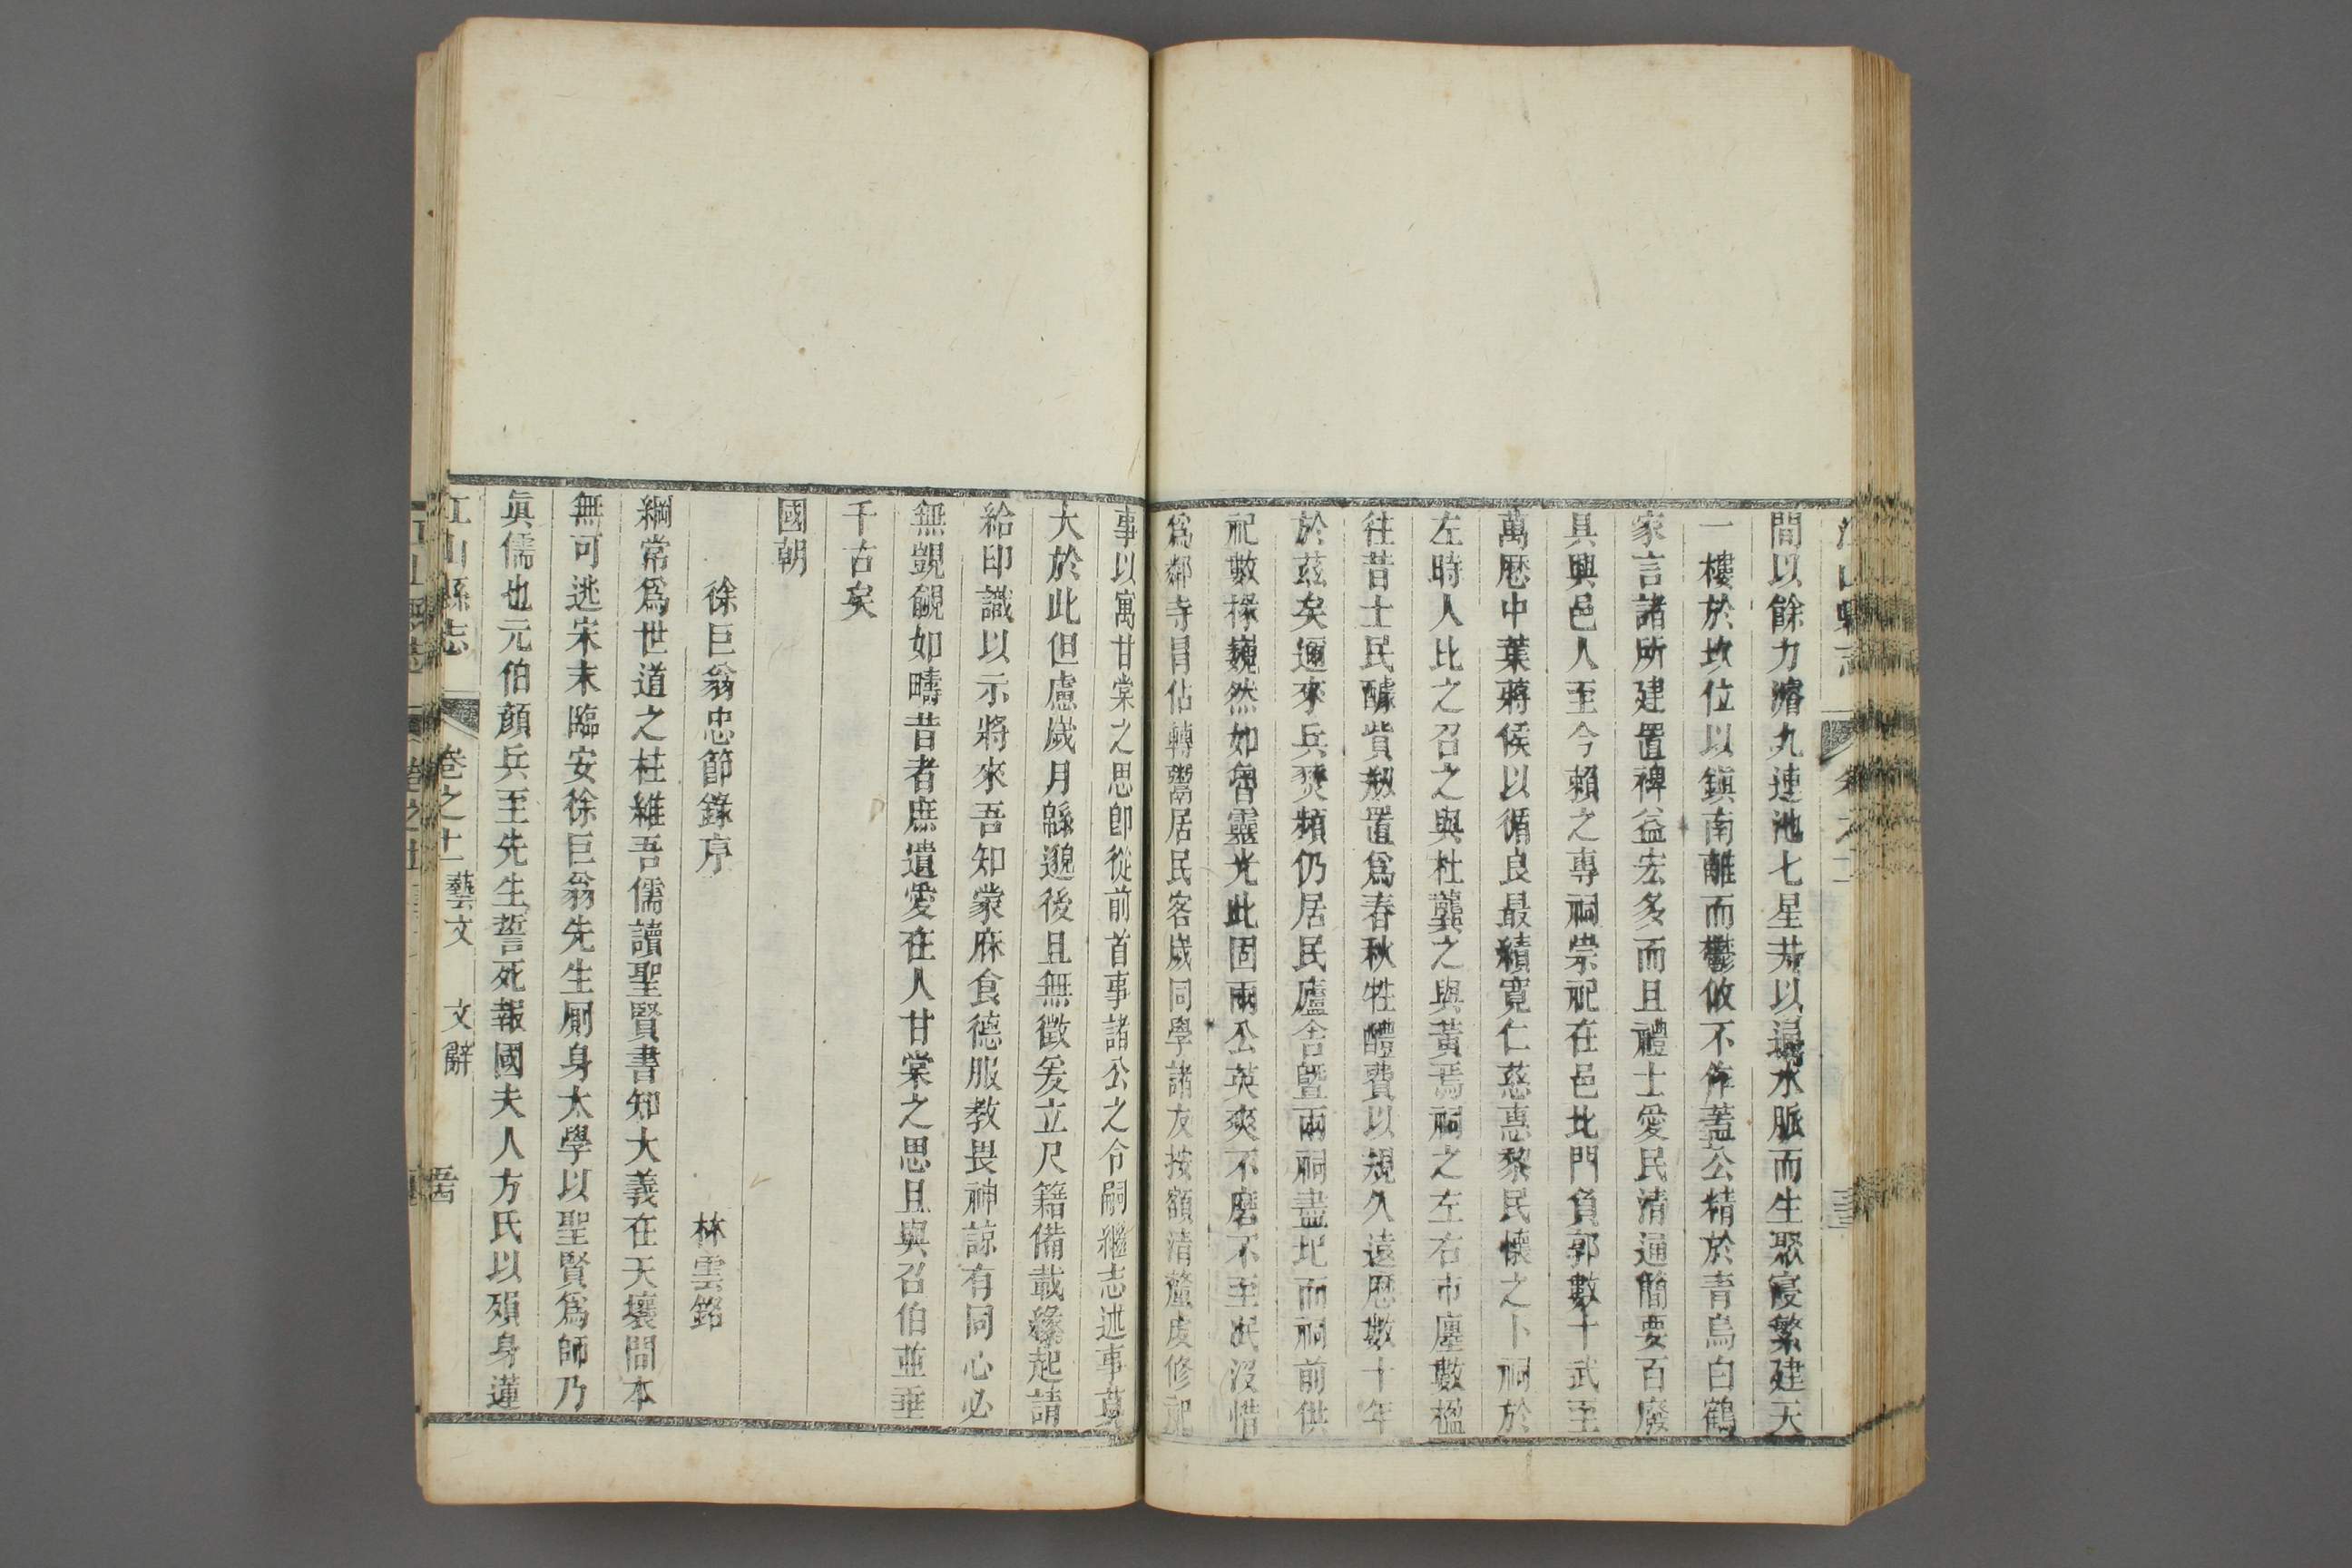 間以餘力濬九連池七星井以通水脈而生聚寖繁建天
一樓於坎位以鎮南離而鬱攸不作蓋公精於青烏白鶴
家言諸所建置裨益宏多而且禮士愛民清通簡要百廢
具興邑人至今賴之專祠崇祀在邑北門負郭數十武至
萬曆中葉蔣侯以循良最績寬仁慈惠黎民懷之卜祠於
左時人比之召之與杜龔之與黃焉祠之左右市廛數楹
往昔士民醵貲剏置爲春秋牲醴費以規久遠曆數十年
於茲矣邇來兵燹頻仍居民廬舍曁兩祠盡圯而祠前供
祀數椽巍然如魯靈光此固兩公英爽不磨不至泯沒惜
爲鄰寺冒佔轉鬻居民客歲同學諸友按額清釐度修祀
事以寓甘棠之思卽從前首事諸公之令嗣繼志述事莫
大於此但慮歲月緜邈後且無徵爰立尺籍備載緣起請
給印識以示將來吾知蒙庥食德服教畏神諒有同心必
無覬覦如疇昔者庶遺愛在人甘棠之思且與召伯並垂
千古矣
國朝
徐巨翁忠節錄序 林雲銘
綱常爲世道之柱維吾儒讀聖賢書知大義在天壤間本
無可逃宋末臨安徐巨翁先生厠身太學以聖賢爲師乃
眞儒也元伯顏兵至先生誓死報國夫人方氏以殞身蓮
江山縣志 卷之十一 藝文 文辭